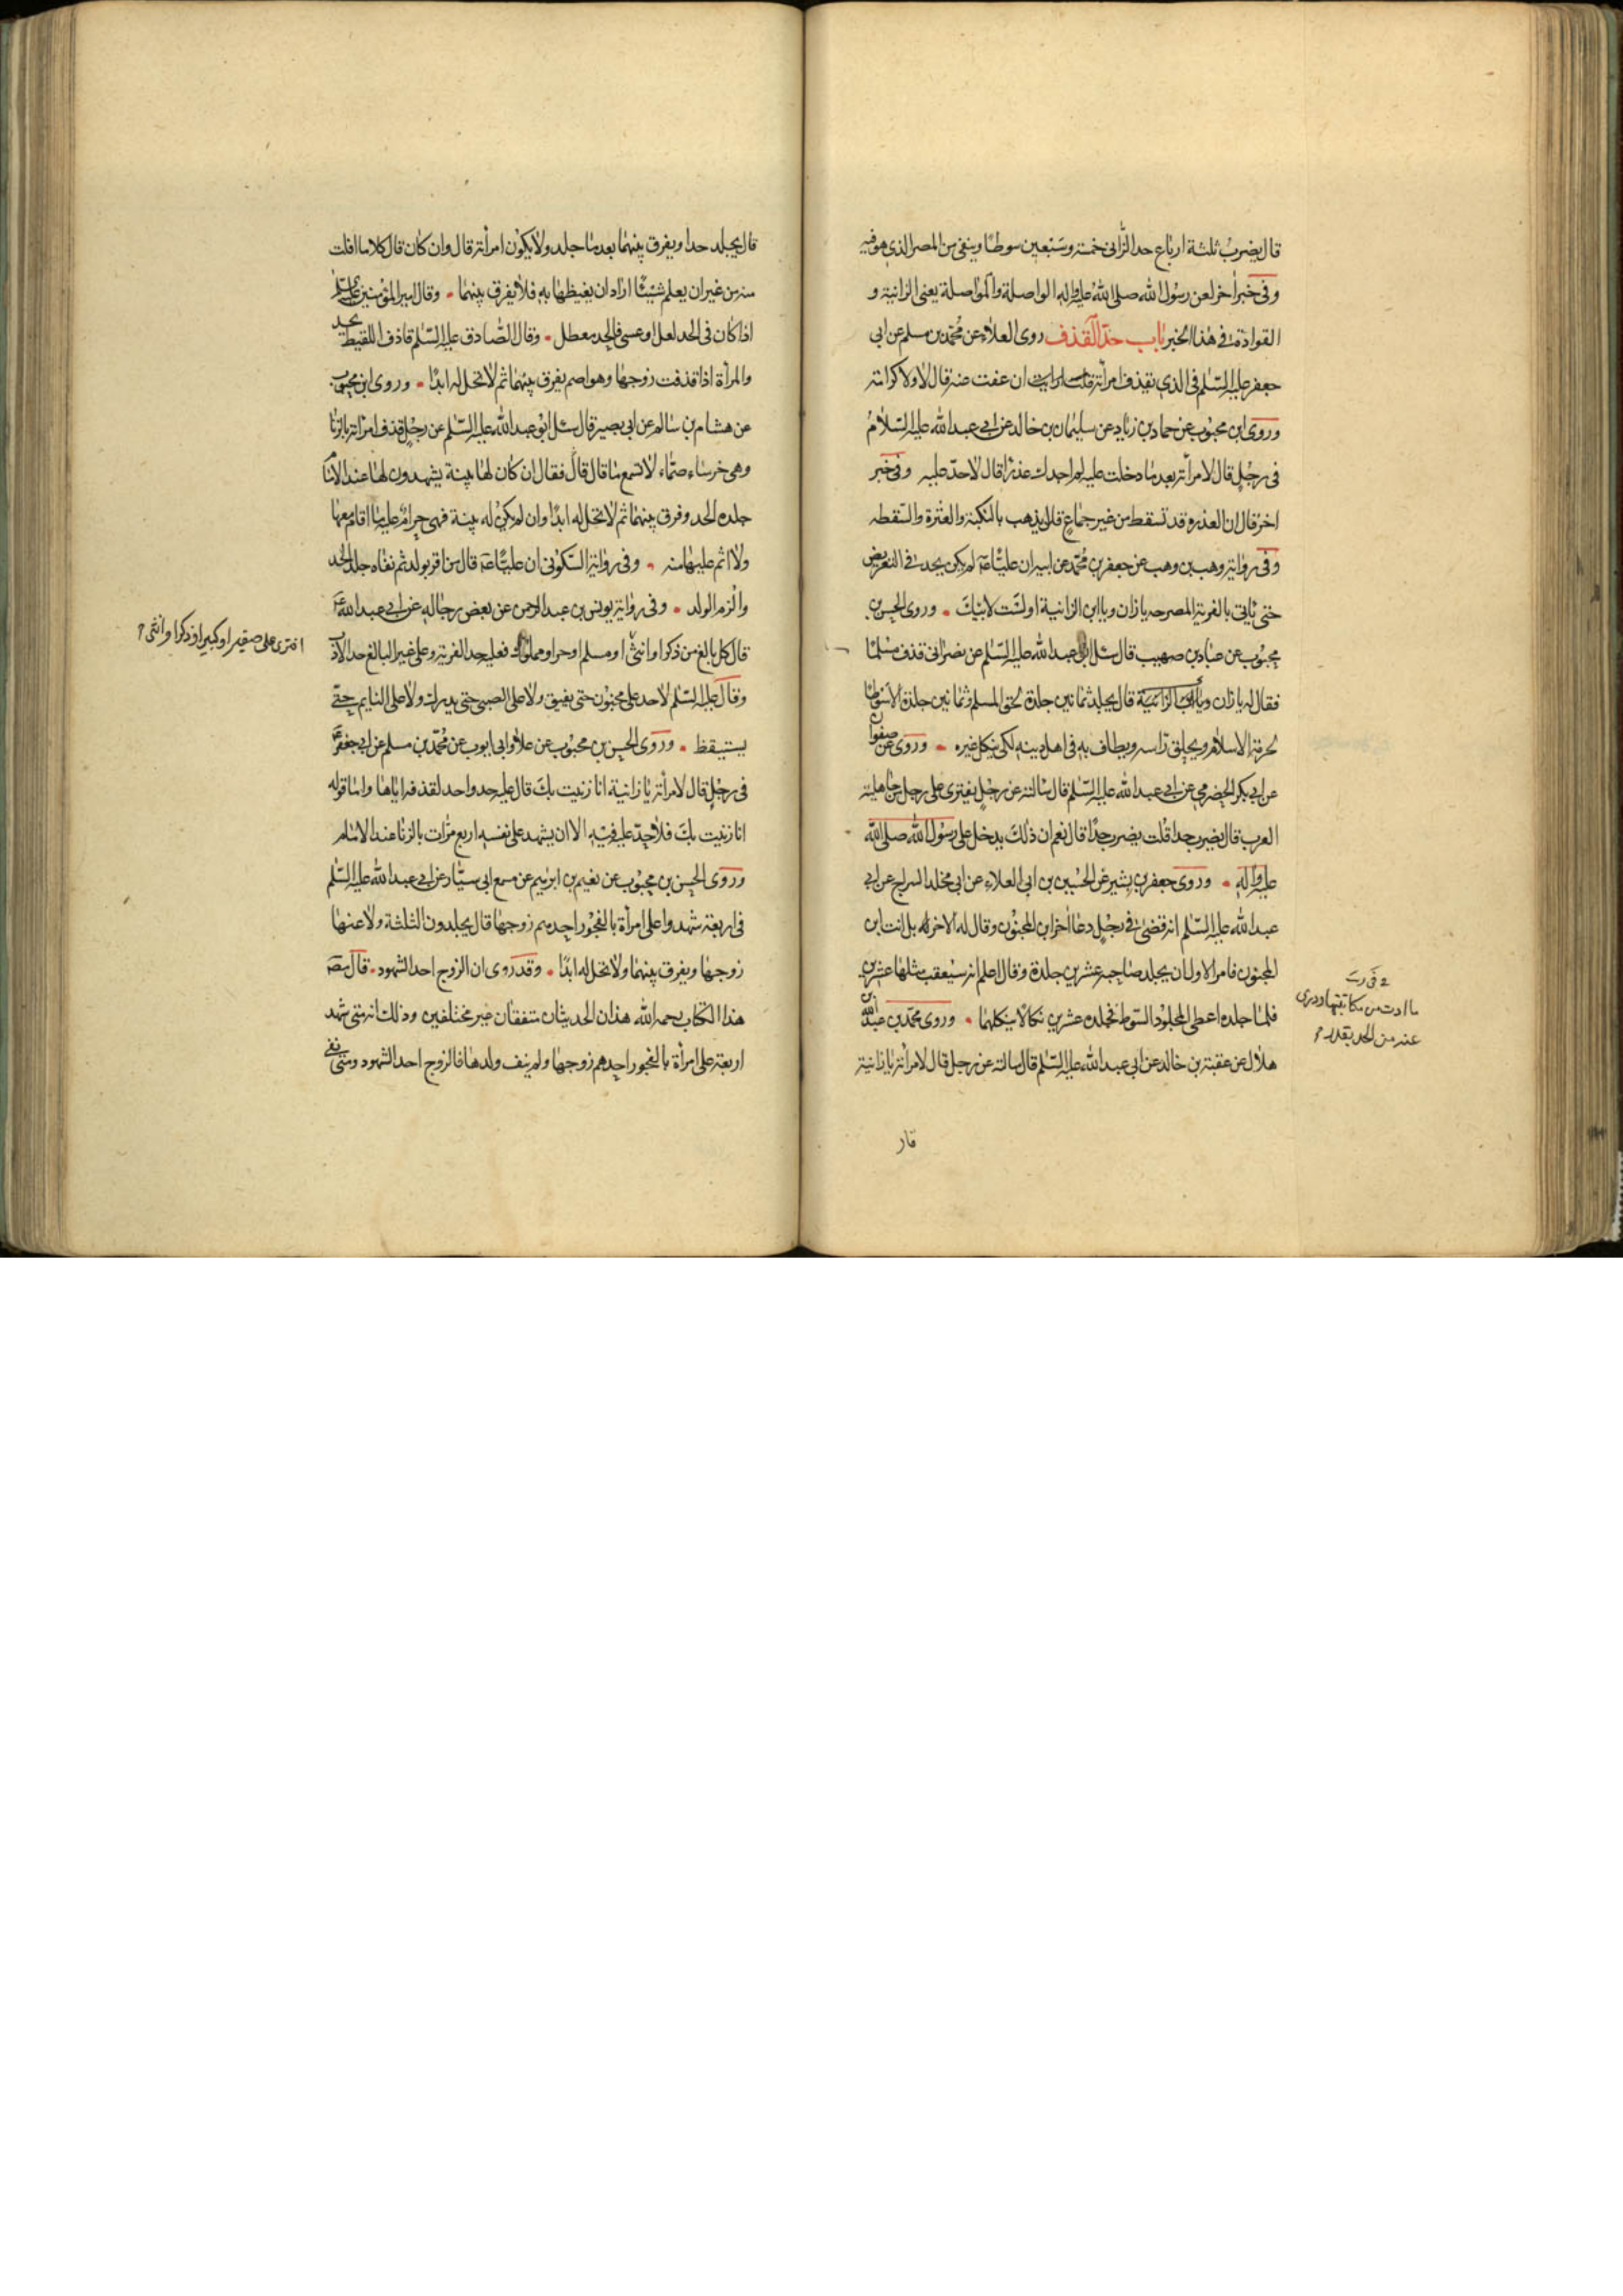 قال يضرب ثلثة ارباع حد الزاني خمسة وسبعين سوطا وينفى من المصر الذي هو فيه
وفي خبر اخر لعن رسول الله صلى الله عليه واله الواصلة والمواصلة يعني الزانية و
القوادة في هذا الخبر باب حد القذف روى العلاء عن محمد بن مسلم عن ابي
جعفر عليه السلم في الذي يقذف امرأته قلت ارايت ان عفت عنه قال لا ولا كرامة
وروى ابن محبوب عن حماد بن زياد عن سليمان بن خالد عن ابي عبد الله عليه السلام
في رجل قال لامرأته بعد ما دخلت عليه لم اجدك عذرا قال لا حد عليه وفي خبر
اخر قال ان العذرة قد تسقط من غير جماع قال يذهب بالنكبة والعثرة والسقطه
وفي رواية وهب بن وهب عن جعفر بن محمد عن ابيه ان عليا عه لم يكن يحد في التعريض
حتى ياتي بالفرية المصرحه يا زان ويا ابن الزانية او لست لابيك وروى الحسن بن
محبوب عن عباد بن صهيب قال سئل ابو عبد الله عليه السلم عن نصراني قذف مسلما
فقال له يا زان ويا ابن الزانية قال يجلد ثمانين جلدة لحق المسلم وثمانين جلدة الا سوطا
لحرمة الاسلام ويحلق راسه ويطاف به في اهل دينه لكي ينكل غيره وروى عن صفوان
عن ابي بكر الحضرمي عن ابي عبد الله عليه السلم قال سالته عن رجل يفترى على رجل من جاهلية
العرب قال يضرب حدا قلت يضرب حدا قال نعم ان ذلك يدخل على رسول الله صلى الله
عليه واله وروى جعفر بن بشير عن الحسين بن ابي العلاء عن ابي مخلد السراج عن ابي
عبد الله عليه السلم انه قضى في رجل دعا اخر ابن المجنون وقال له الاخر له بل انت ابن
المجنون فامر الاول ان يجلد صاحبه عشرين جلدة وقال اعلم انه سيعقب مثلها عشرين
فلما جلده اعطى المجلود السوط فجلده عشرين نكالا ينكلهما وروى محمد بن عبد الله بن
هلال عن عقبة بن خالد عن ابي عبد الله عليه السلم قال سالته عن رجل قال لامرأته يا زانية
قال
ما ادت من مكاتبتها ودرى
عنه من الحد بقدر
قال يجلد حدا ويفرق بينهما بعد ما جلد ولا يكون امرأته قال وان كان قال كلاما افلت
منه من غير ان يعلم شيئا اراد ان يغيظها به فلا يفرق بينهما وقال امير المؤمنين عليه السلم
اذا كان في الحد لعل او عسى فالحد معطل وقال الصادق عليه السلم قاذف اللقيط يحد
والمرأة اذا قذفت زوجها وهو اصم يفرق بينهما ثم لا تحل له ابدا وروى ابن محبوب
عن هشام بن سالم عن ابي بصير قال سئل ابو عبد الله عليه السلم عن رجل قذف امرأته بالزنا
وهي خرساء صماء لا تسمع ما قال قال فقال ان كان لها بينة يشهدون لها عند الامام
جلده الحد وفرق بينهما ثم لا تحل له ابدا وان لم يكن له بينة فهي حرام عليه ما اقام معها
ولا اثم عليها منه وفي رواية السكوني ان عليا عه قال من اقر بولد ثم نفاه جلد الحد
والزم الولد وفي رواية يونس بن عبد الرحمن عن بعض رجاله عن ابي عبد الله عه
قال كل بالغ من ذكر او انثى او مسلم او حر او مملوك فعليه حد الفرية وعلى غير البالغ حد الادب
افترى على صغير او كبير او ذكر او انثى
وقال عليه السلم لا حد على مجنون حتى يفيق ولا على الصبي حتى يدرك ولا على النايم حتى
يستيقظ وروى الحسن بن محبوب عن علاء وابي ايوب عن محمد بن مسلم عن ابي جعفر عه
في رجل قال لامرأته يا زانية انا زنيت بك قال عليه حد واحد لقذفه اياها واما قوله
انا زنيت بك فلا حد عليه فيه الا ان يشهد على نفسه اربع مرات بالزنا عند الامام
وروى الحسن بن محبوب عن نعيم بن ابرهيم عن مسمع ابي سيار عن ابي عبد الله عليه السلم
في اربعة شهدوا على امرأة بالفجور احدهم زوجها قال يجلدون الثلثة ولاعنها
زوجها ويفرق بينهما ولا تحل له ابدا وقد روى ان الزوج احد الشهود قال مصنف
هذا الكتاب رحمه الله هذان الحديثان متفقان غير مختلفين وذلك انه متى شهد
اربعة على امرأة بالفجور احدهم زوجها ولم ينف ولدها فالزوج احد الشهود ومتى نفى